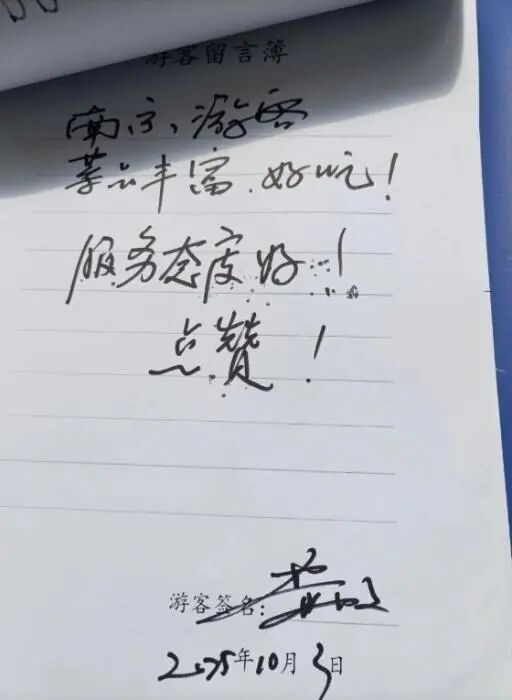 游客留言簿
南宁游客
菜品丰富、好吃！
服务态度好！
点赞！
游客签名：
2025年10月3日